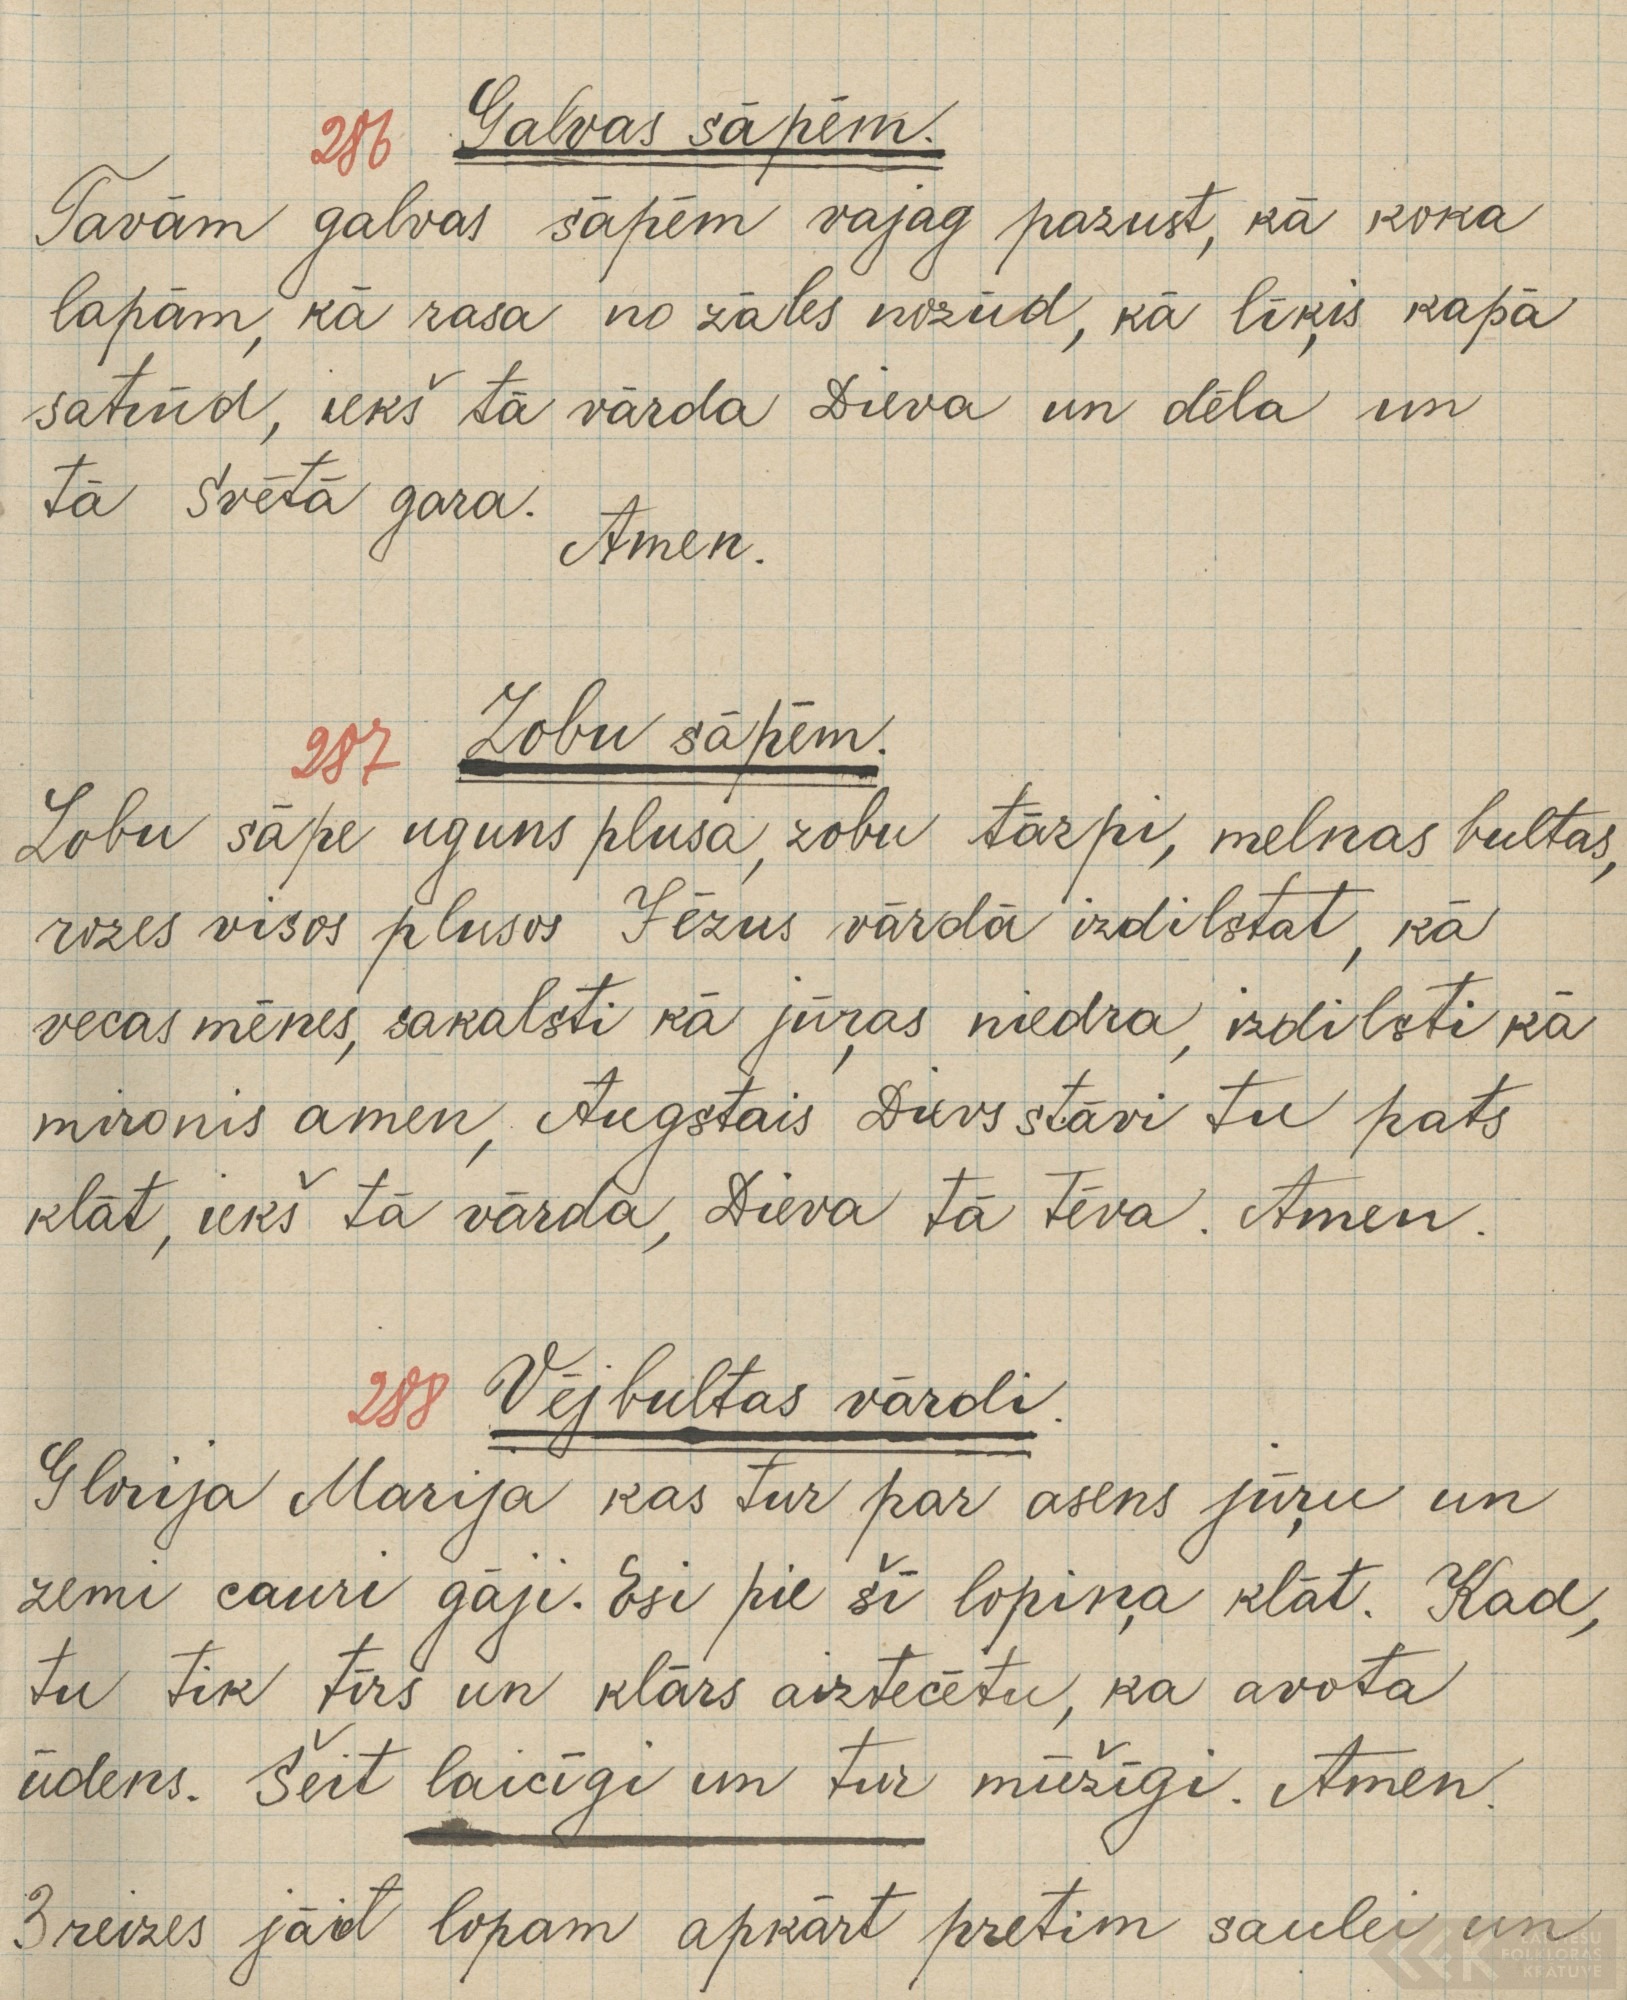 286 Galvas sāpēm.
Tavām galvas sāpēm vajag pazust, kā koka
lapām, kā rasa no zāles nozūd, kā līķis kapā
satrūd, iekš tā vārda Dieva un dēla un
tā svētā gara.
Amen.
287 Zobu sāpēm.
Zobu sāpe uguns plusa, zobu tārpi, melnas bultas,
rozes visos plusos Jēzus vārdā izdilstat, kā
vecas mēnes, sakalsti kā jūŗas niedra, izdilsti kā
mironis amen, Augstais Dievs stāvi tu pats
klāt, iekš tā vārda, Dieva tā Tēva. Amen.
288 Vējbultas vārdi.
Glorija Marija kas tur par asens jūŗu un
zemi cauri gāji. Esi pie šī lopiņa klāt. Kad,
tu tik tīrs un klārs aiztecētu, ka avota
ūdens. Šeit laicīgi un tur mūžīgi. Amen.
3 reizes jāiet lopam apkārt pretim saulei un
LATVIEŠU
FOLKLORAS
KRĀTUVE